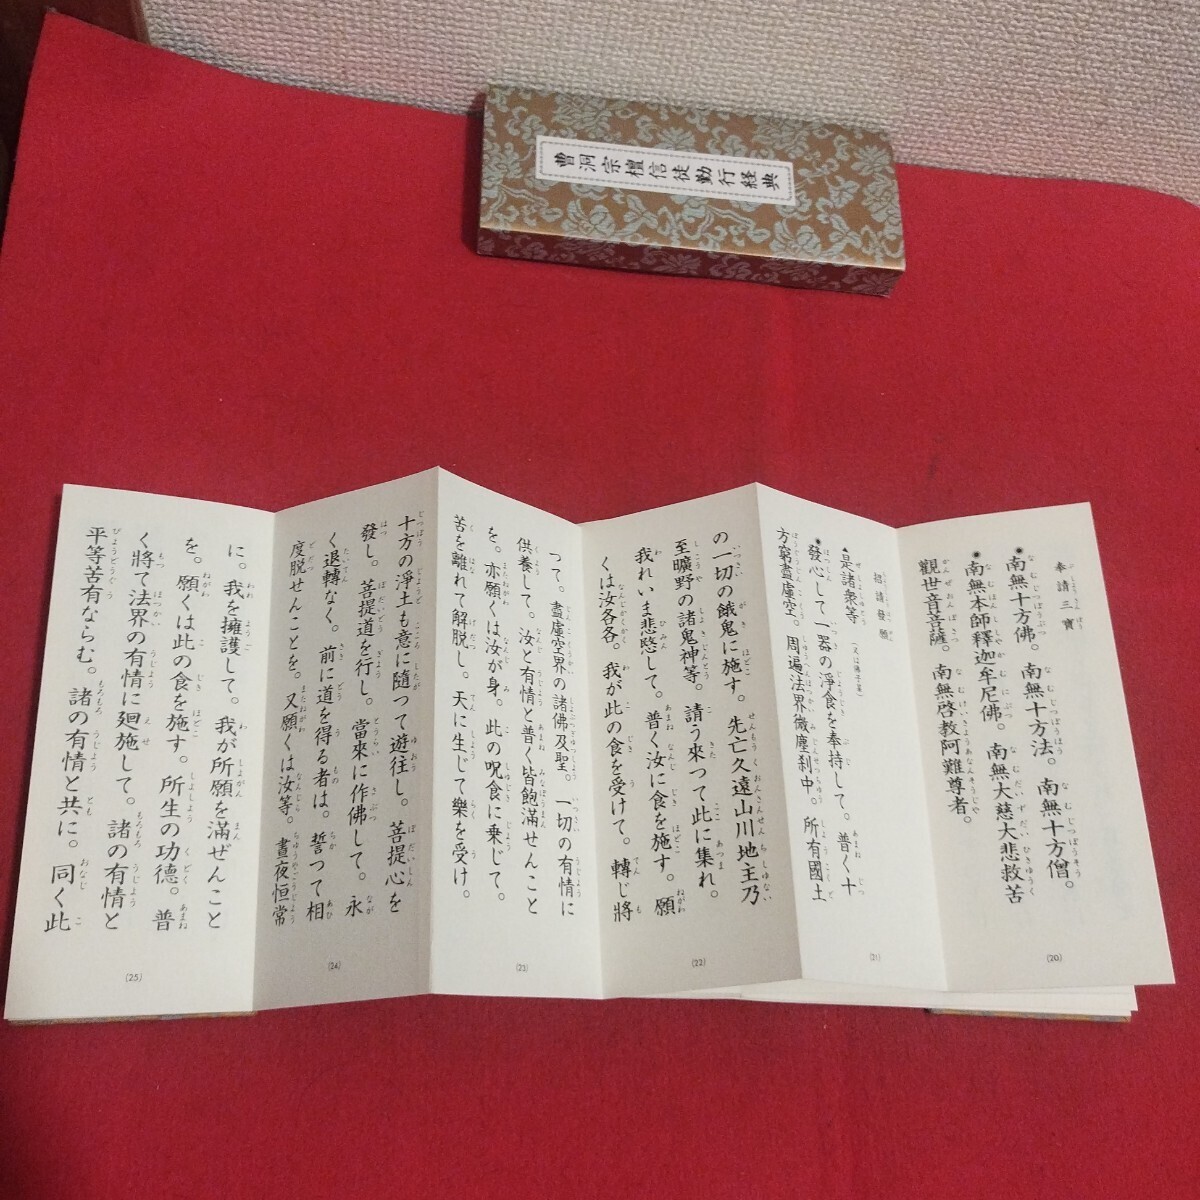 曹洞宗檀信徒勤行経典
奉請三寶
南無十方佛。南無十方法。南無十方僧。
南無本師釋迦牟尼佛。南無大慈大悲救苦
觀世音菩薩。南無啓教阿難尊者。
(20)
招請發願
是諸衆等
發心して一器の淨食を奉持して。普く十
方窮盡虛空。周遍法界微塵刹中。所有國土
(21)
の一切の餓鬼に施す。先亡久遠山川地主乃
至曠野の諸鬼神等。請う來つて此に集れ。
我れいま悲愍して。普く汝に食を施す。願
くは汝各各。我が此の食を受けて。轉じ將
(22)
つて。盡虛空界の諸佛及聖。一切の有情に
供養して。汝と有情と普く皆飽滿せんこと
を。亦願くは汝が身。此の呪食に乗じて。
苦を離れて解脱し。天に生じて樂を受け。
(23)
十方の淨土も意に隨つて遊往し。菩提心を
發し。菩提道を行し。當來に作佛して。永
く退轉なく。前に道を得る者は。誓つて相
度脱せんことを。又願くは汝等。晝夜恒常
(24)
に。我を擁護して。我が所願を滿ぜんこと
を。願くは此の食を施す。所生の功德。普
く將て法界の有情に廻施して。諸の有情と
平等苦有ならむ。諸の有情と共に。同く此
(25)